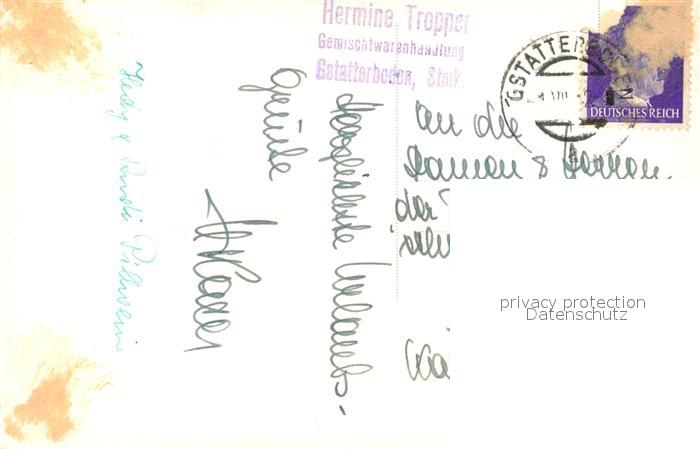 Hermine Tropper
Gemischtwarenhandlung
Gstatterboden, Stmk.
GSTATTERBODEN
DEUTSCHES REICH
An die
Damen & Herren
der
Herzlichste Urlaubs-
Grüße
Hedy & Rudi
privacy protection
Datenschutz